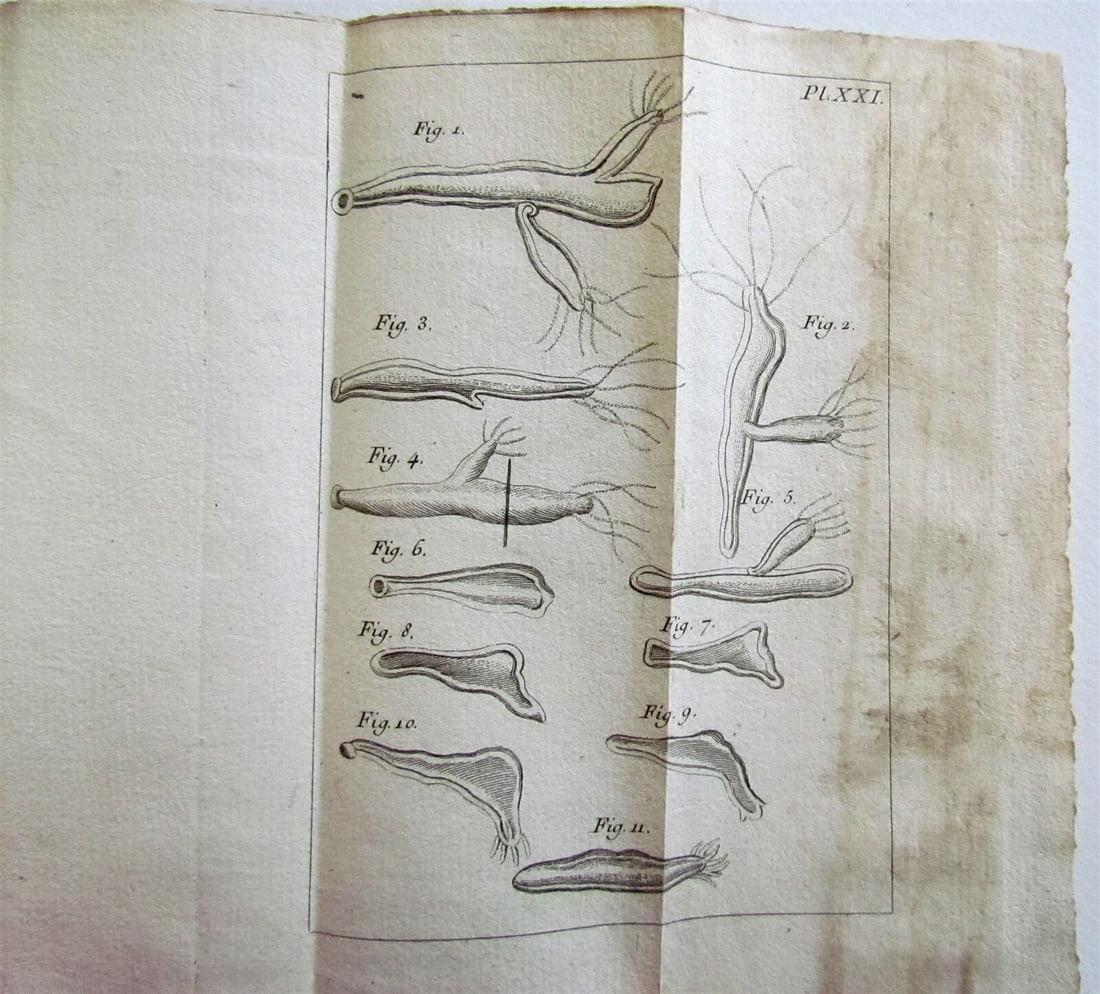 Pl. XXI.
Fig. 1.
Fig. 3.
Fig. 2.
Fig. 4.
Fig. 5.
Fig. 6.
Fig. 8.
Fig. 7.
Fig. 10.
Fig. 9.
Fig. 11.